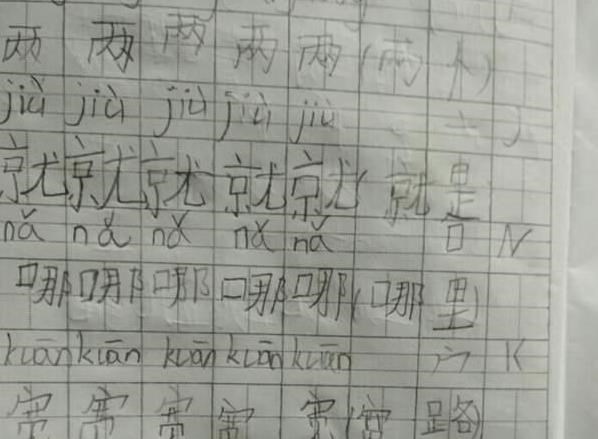 两 两 两 两 两 (两 个)
jiù jiù jiù jiù jiù 亠 J
就 就 就 就 就 (就 是
nǎ nǎ nǎ nǎ nǎ 口 N
哪 哪 哪 哪 哪 (哪 里)
kuān kuān kuān kuān kuān 宀 K
宽 宽 宽 宽 宽 (宽 路)